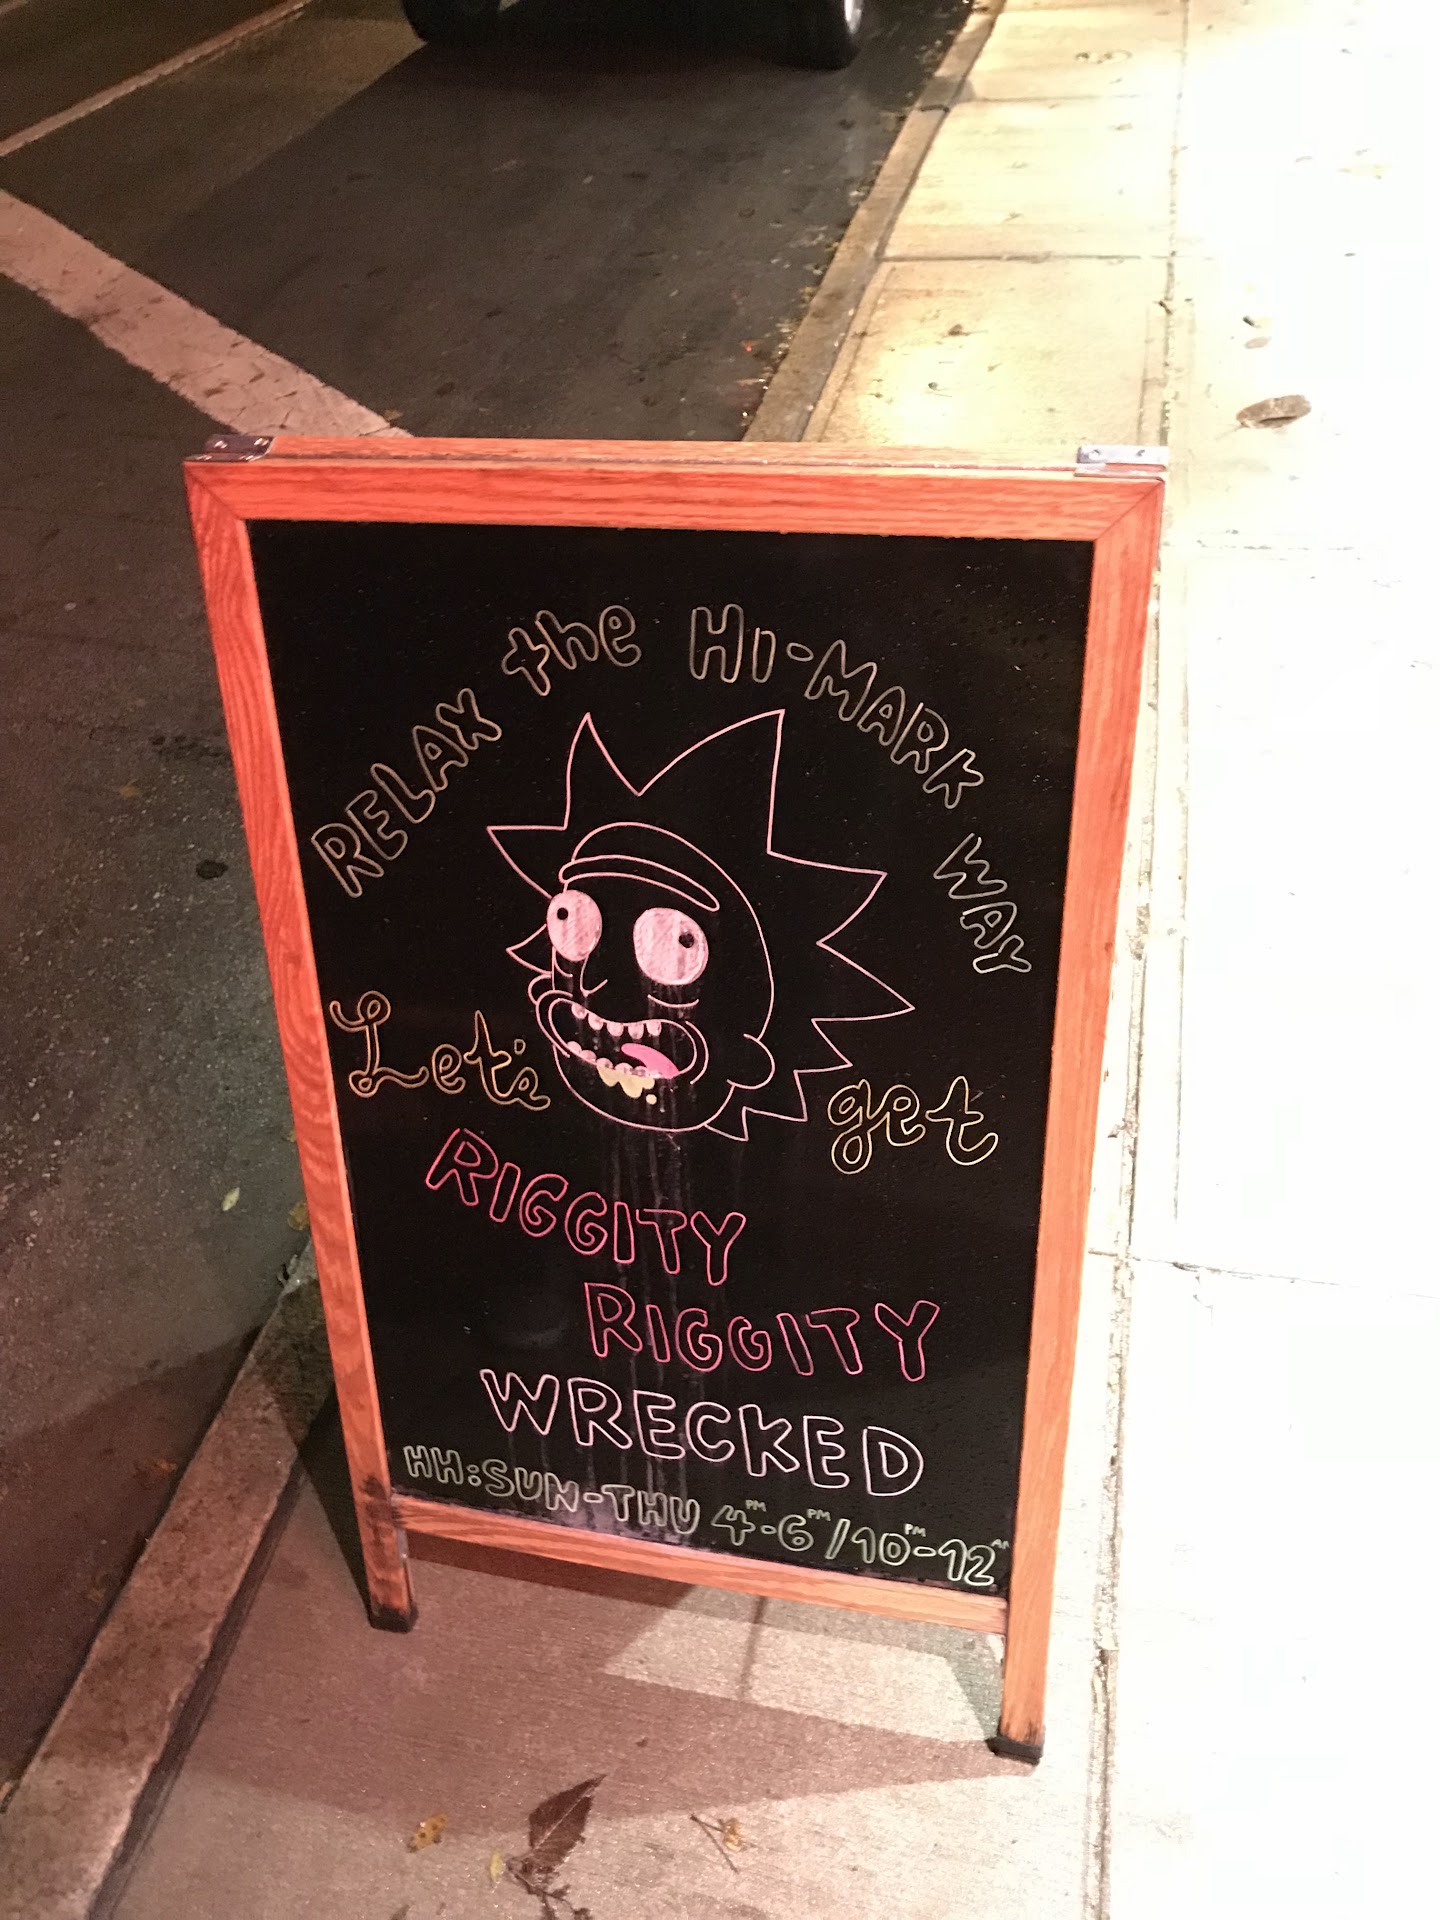 RELAX the HI-MARK WAY
Let's get
RIGGITY
RIGGITY
WRECKED
HH: SUN-THU 4PM-6PM/10PM-12AM